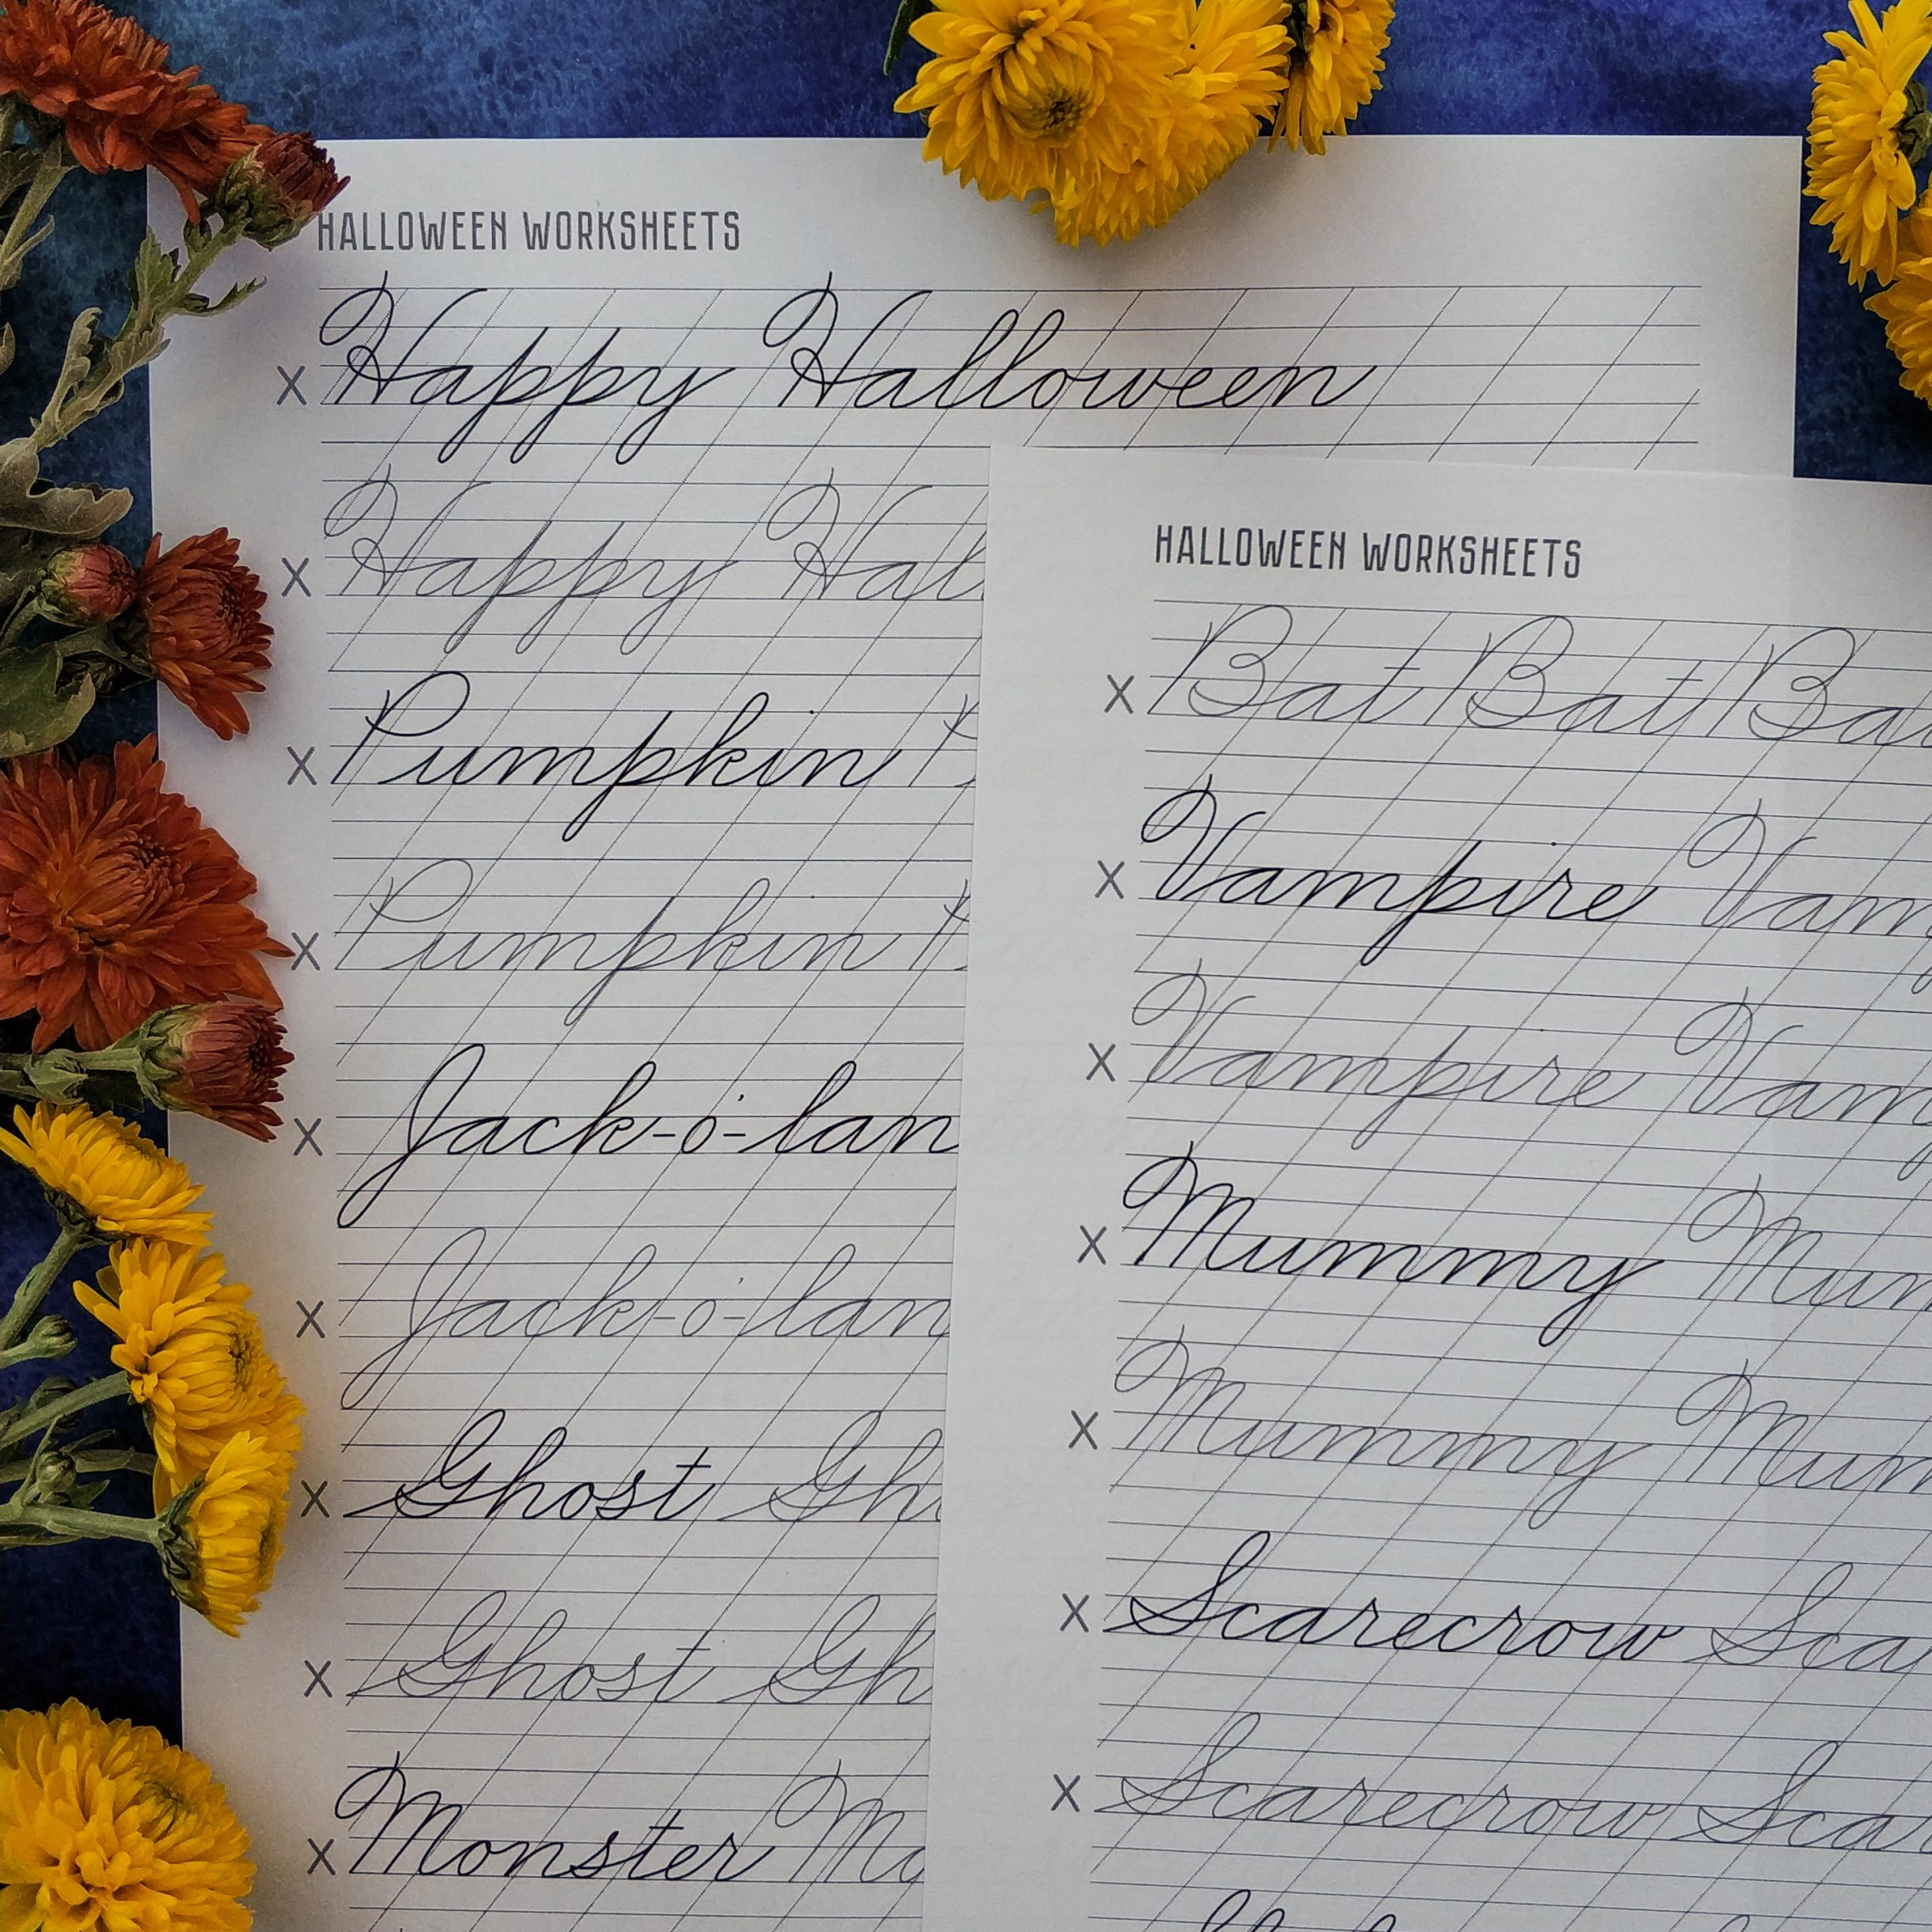 HALLOWEEN WORKSHEETS
X Happy Halloween
X Happy
X Pumpkin
X Pumpkin
X Jack-o'-lan
X Jack-o'-lan
X Ghost Gh
X Ghost Gh
X Monster Mo
HALLOWEEN WORKSHEETS
X Bat Bat Ba
X Vampire Vam
X Vampire Vam
X Mummy Mum
X Mummy Mum
X Scarecrow Sca
X Scarecrow Sca